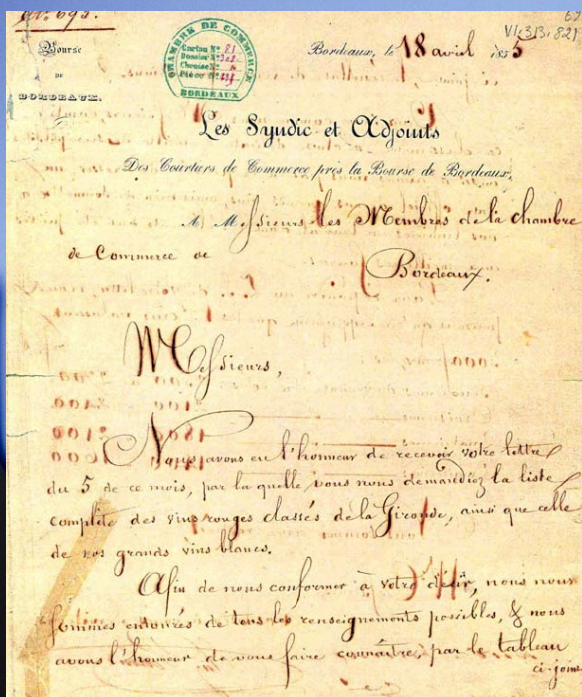 N.º 693.
69
VI.313.821
Bourse
DE
BORDEAUX.
CHAMBRE DE COMMERCE
Carton Nº 81
Dossier Nº
Chemise Nº
Pièce Nº
BORDEAUX
Bordeaux, le 18 avril 1855
Les Syndic et Adjoints
Des Courtiers de Commerce près la Bourse de Bordeaux,
A Messieurs les Membres de la chambre
de Commerce de
Bordeaux.
Messieurs,
Nous avons eu l'honneur de recevoir votre lettre
du 5 de ce mois, par la quelle vous nous demandiez la liste
complète des vins rouges classés de la Gironde, ainsi que celle
de nos grands vins blancs.
Afin de nous conformer à votre désir, nous nous
sommes entourés de tous les renseignements possibles, & nous
avons l'honneur de vous faire connaître, par le tableau
ci-joint